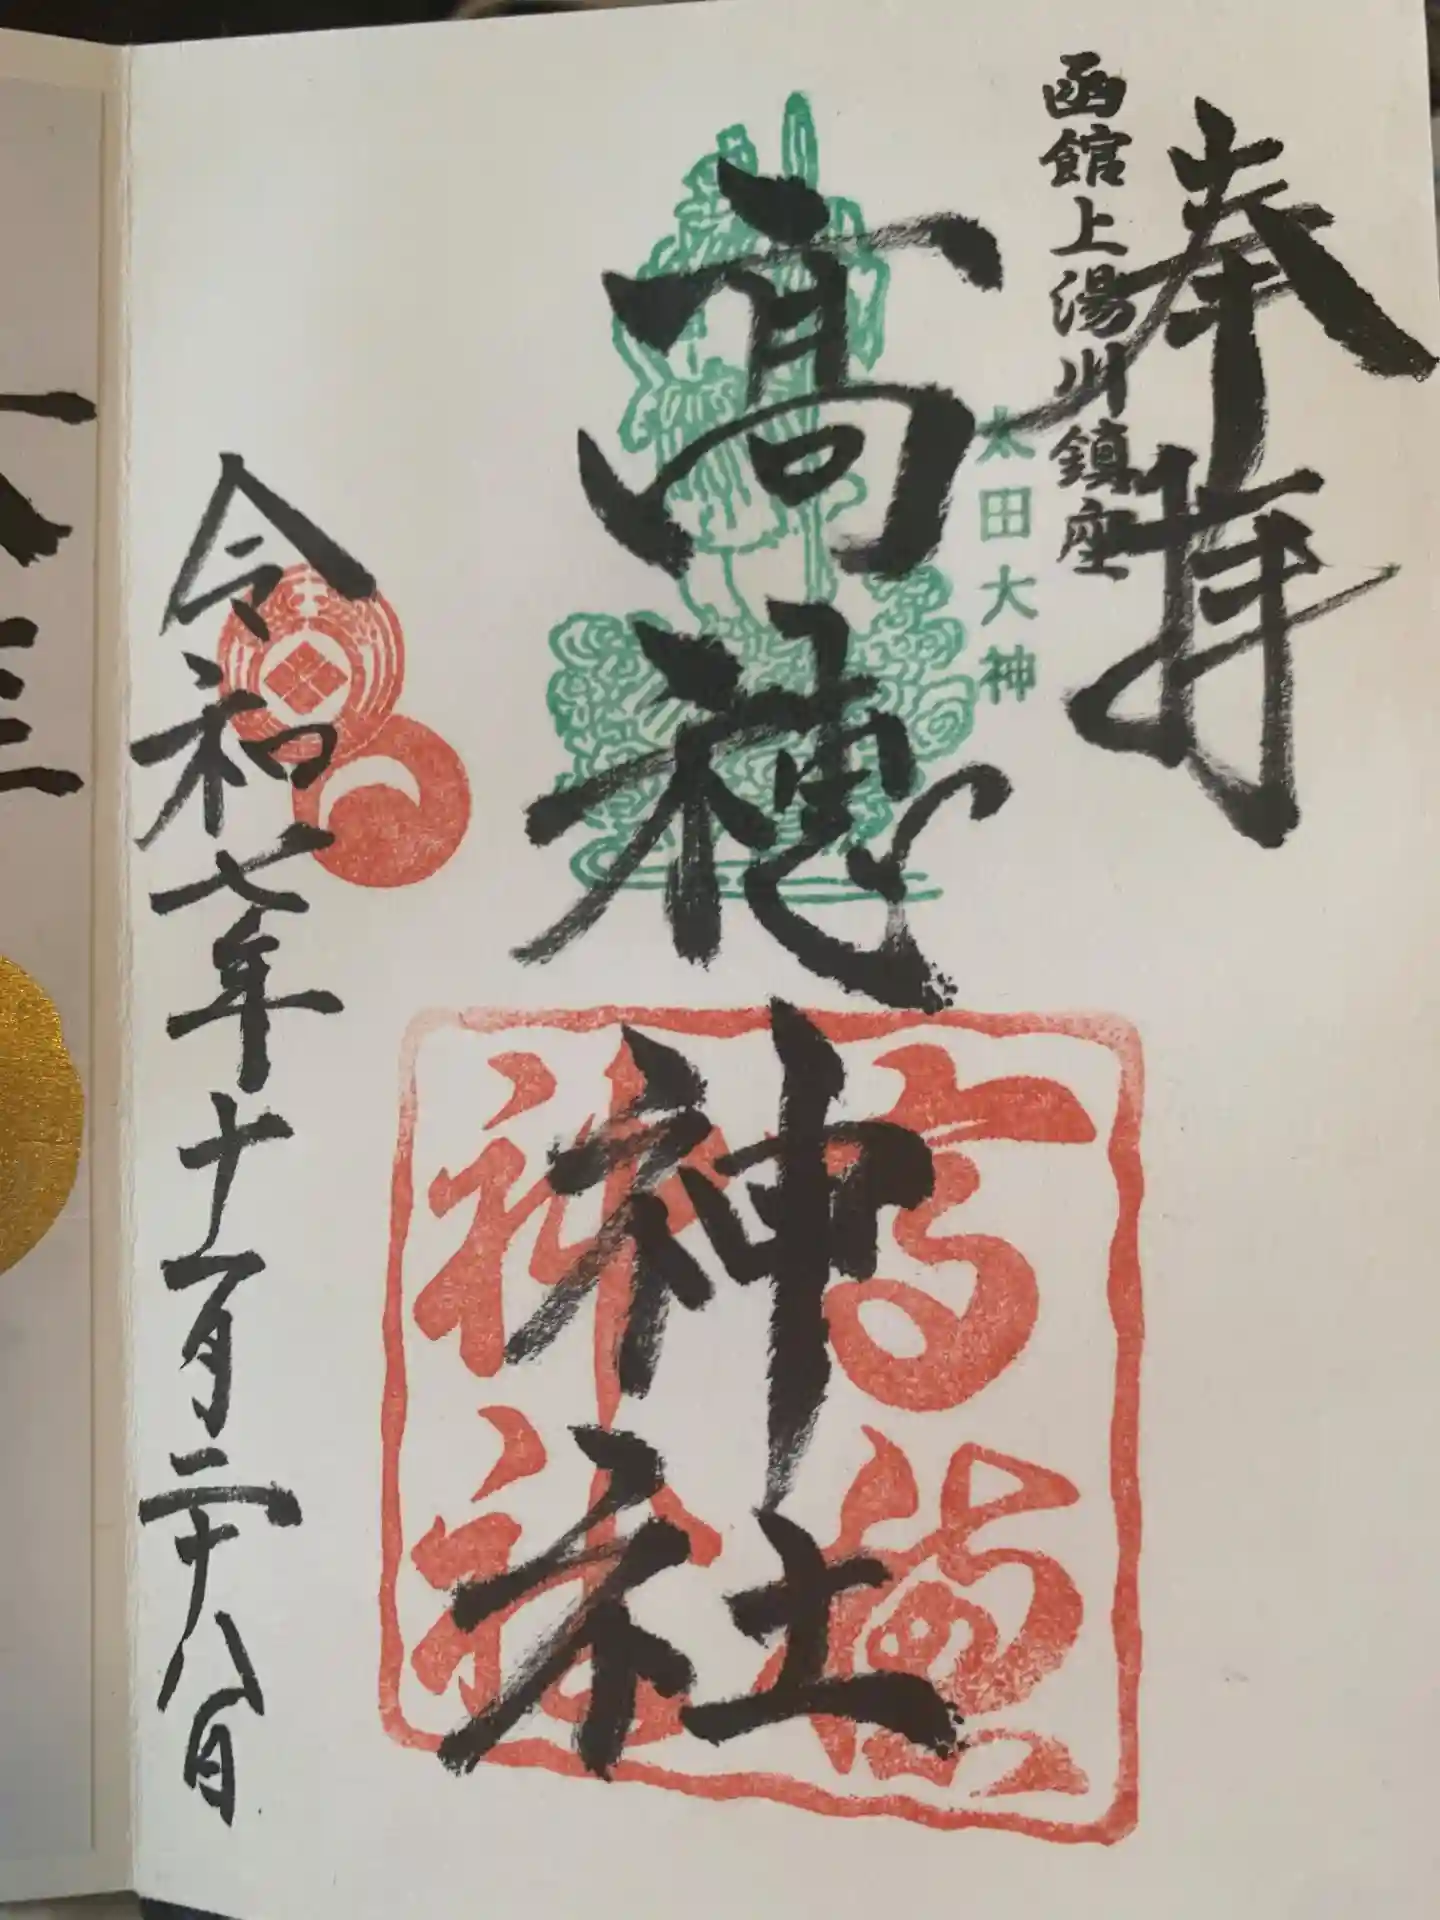 奉拝
函館上湯川鎮座
太田大神
高穂神社
高穂
神社
令和七年十一月二十八日